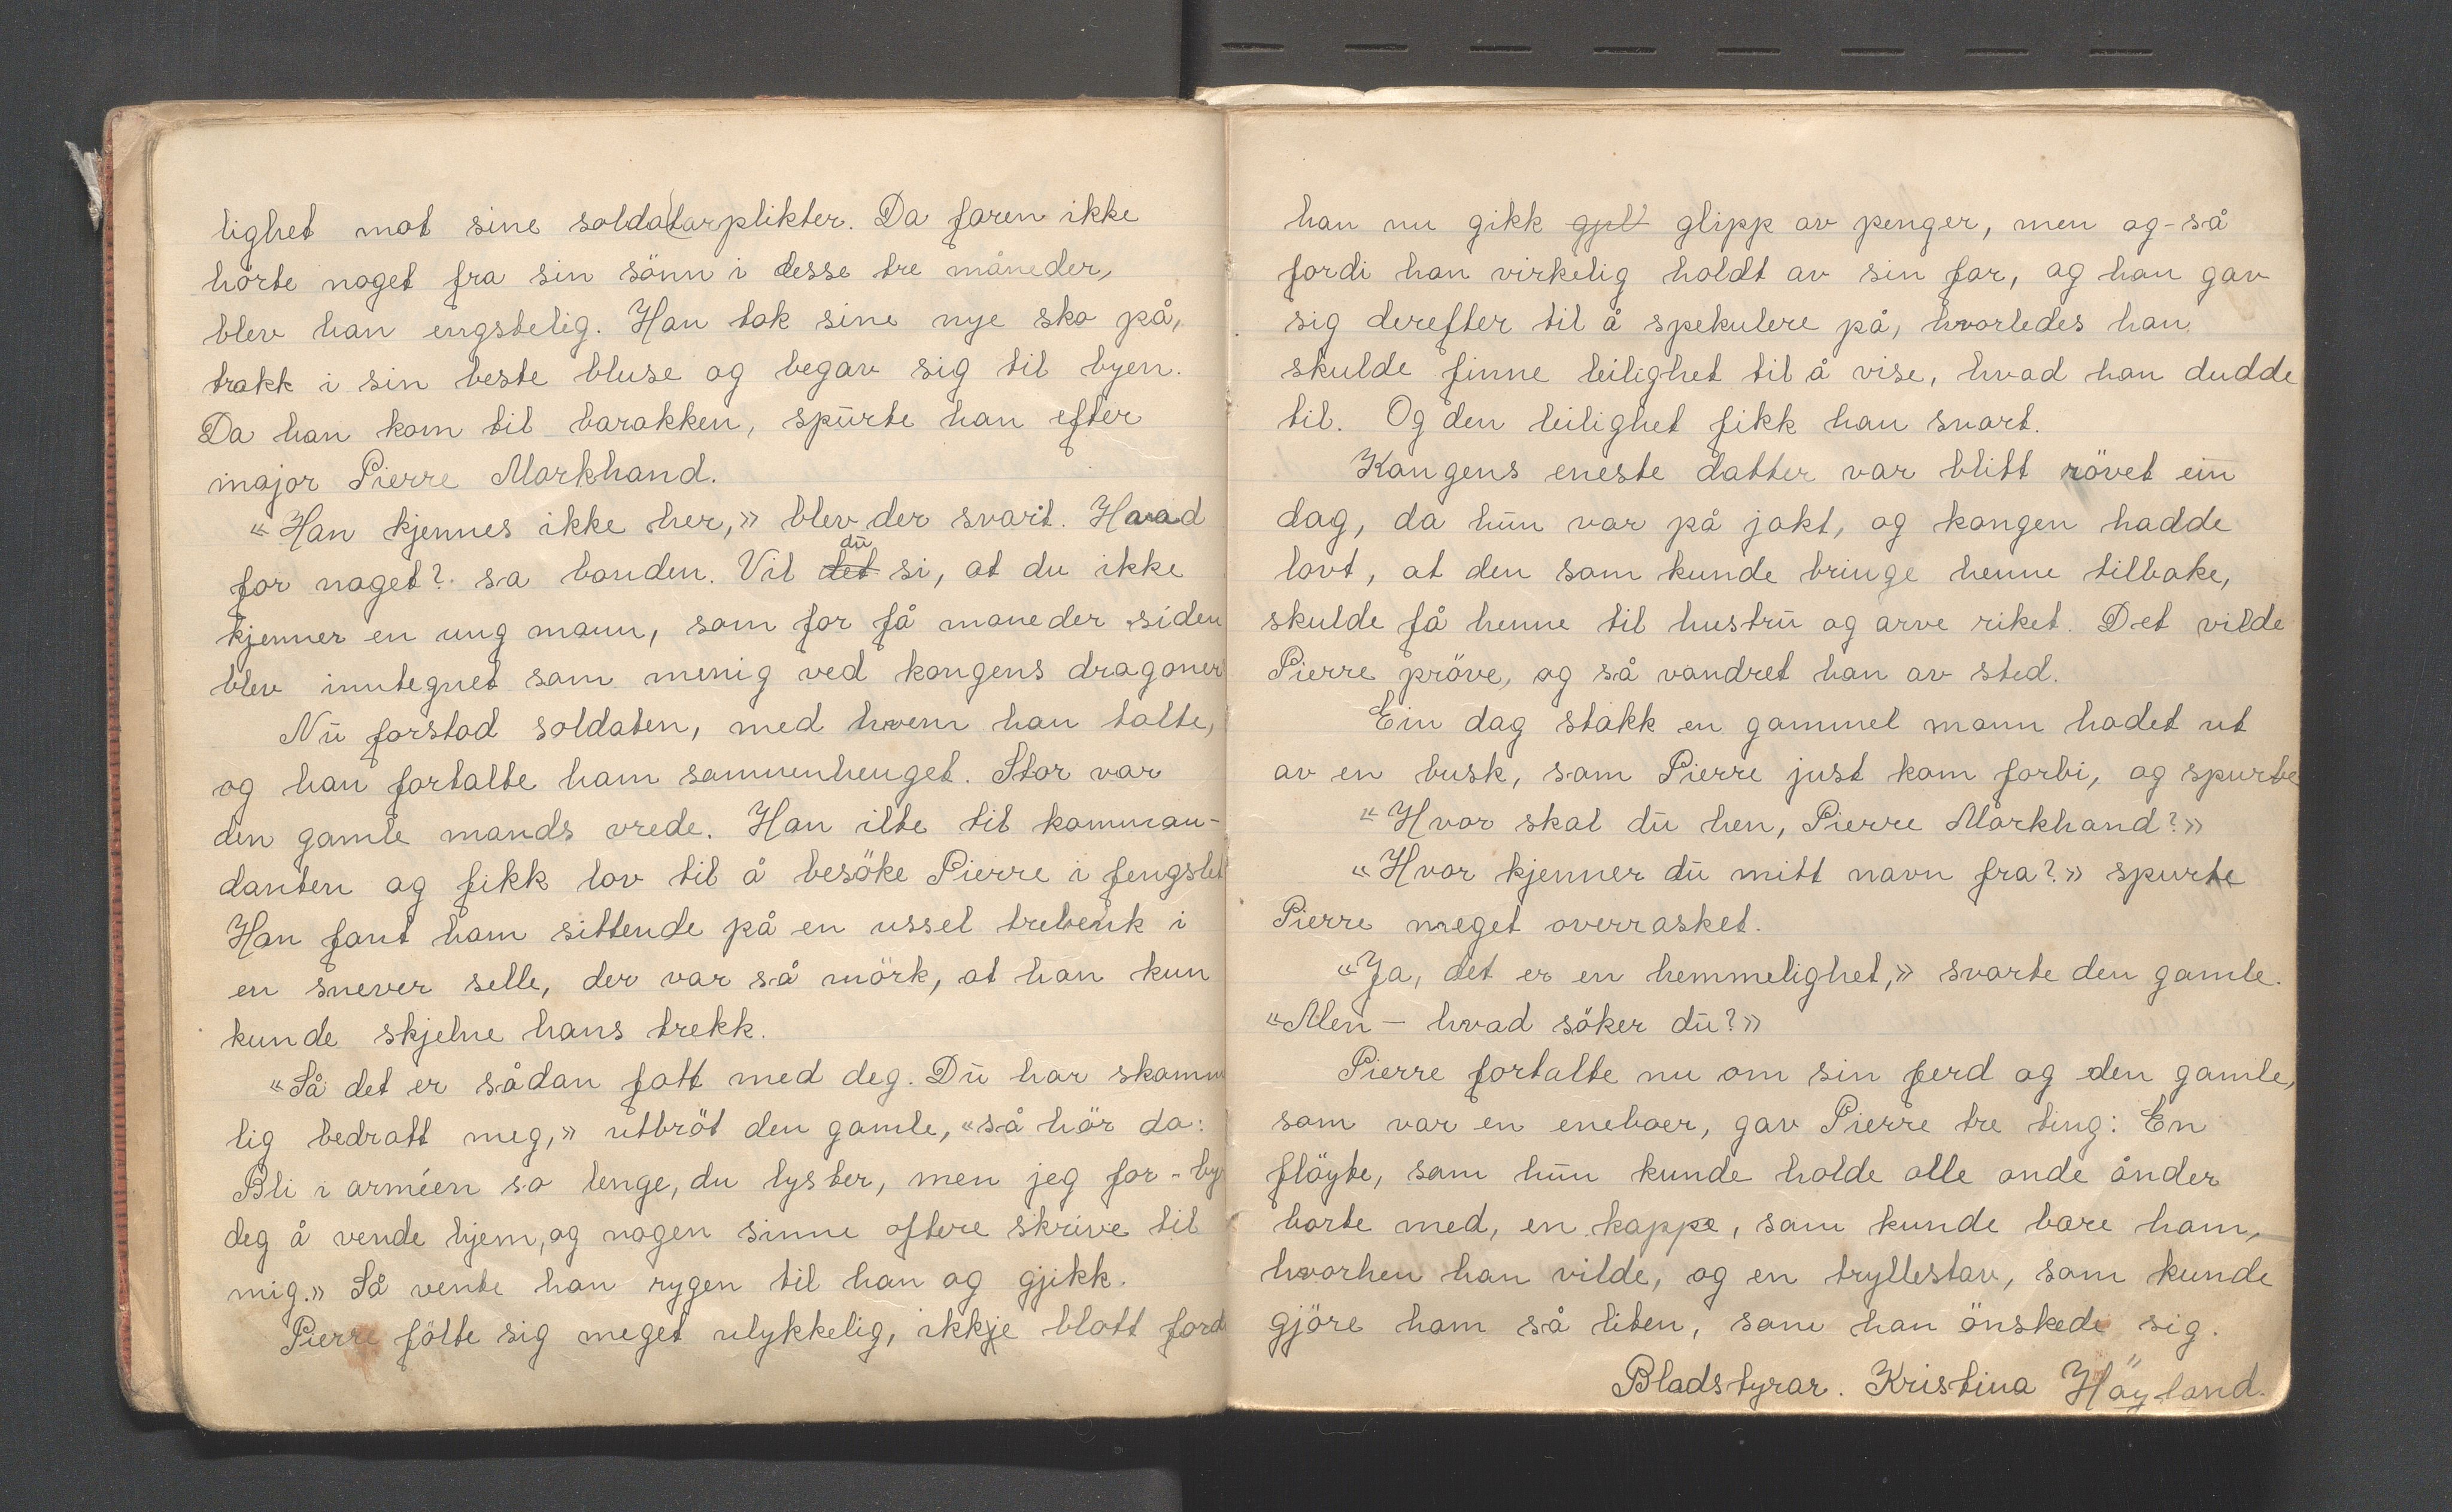 lighet mot sine soldatarplikter. Da faren ikke
hörte noget fra sin sönn i desse tre måneder,
blev han engstelig. Han tok sine nye sko på,
trakk i sin beste bluse og begav sig til byen.
Da han kom til barakken, spurte han efter
major Pierre Markhand.
«Han kjennes ikke her,» blev der svart. Hvad
for noget? sa bonden. Vil det du si, at du ikke
kjenner en ung mann, som for få moneder siden
blev inntegnet som menig ved kongens dragoner
Nu forstod soldaten, med hvem han talte,
og han fortalte ham sammenhenget. Stor var
den gamle mands vrede. Han ilte til komman-
danten og fikk lov til å besöke Pierre i fengslet
Han fant ham sittende på en ussel trebenk i
en snever selle, der var så mörk, at han kun
kunde skjelne hans trekk.
«Så det er sådan fatt med deg. Du har skamm
lig bedratt meg,» utbröt den gamle, «så hör da:
Bli i arméen so lenge, du lyster, men jeg for-by
deg å vende hjem, og nogen sinne oftere skrive til
mig.» Så vente han rygen til han og gjikk.
Pierre fölte sig meget ulykkelig, ikkje blott ford
han nu gikk gjel glipp av penger, men og-så
fordi han virkelig holdt av sin far, og han gav
sig derefter til å spekulere på, hvorledes han
skulde finne leilighet til å vise, hvad han dudde
til. Og den leilighet fikk han snart.
Kongens eneste datter var blitt rövet ein
dag, da hun var på jakt, og kongen hadde
lovt, at den som kunde bringe henne tilbake,
skulde få henne til hustru og arve riket. Det vilde
Pierre pröve, og så vandret han av sted.
Ein dag stakk en gammel mann hodet ut
av en busk, som Pierre just kom forbi, og spurte
«Hvor skal du hen, Pierre Markhand?»
«Hvor kjenner du mitt navn fra?» spurte
Pierre meget overrasket.
«Ja, det er en hemmelighet,» svarte den gamle.
«Men – hvad söker du?»
Pierre fortalte nu om sin ferd og den gamle,
som var en eneboer, gav Pierre tre ting: En
flöyte, som hun kunde holde alle onde ånder
borte med, en kappe, som kunde bare ham,
hvorhen han vilde, og en tryllestav, som kunde
gjöre ham så liten, som han önskede sig.
Bladstyrar. Kristina Höyland.